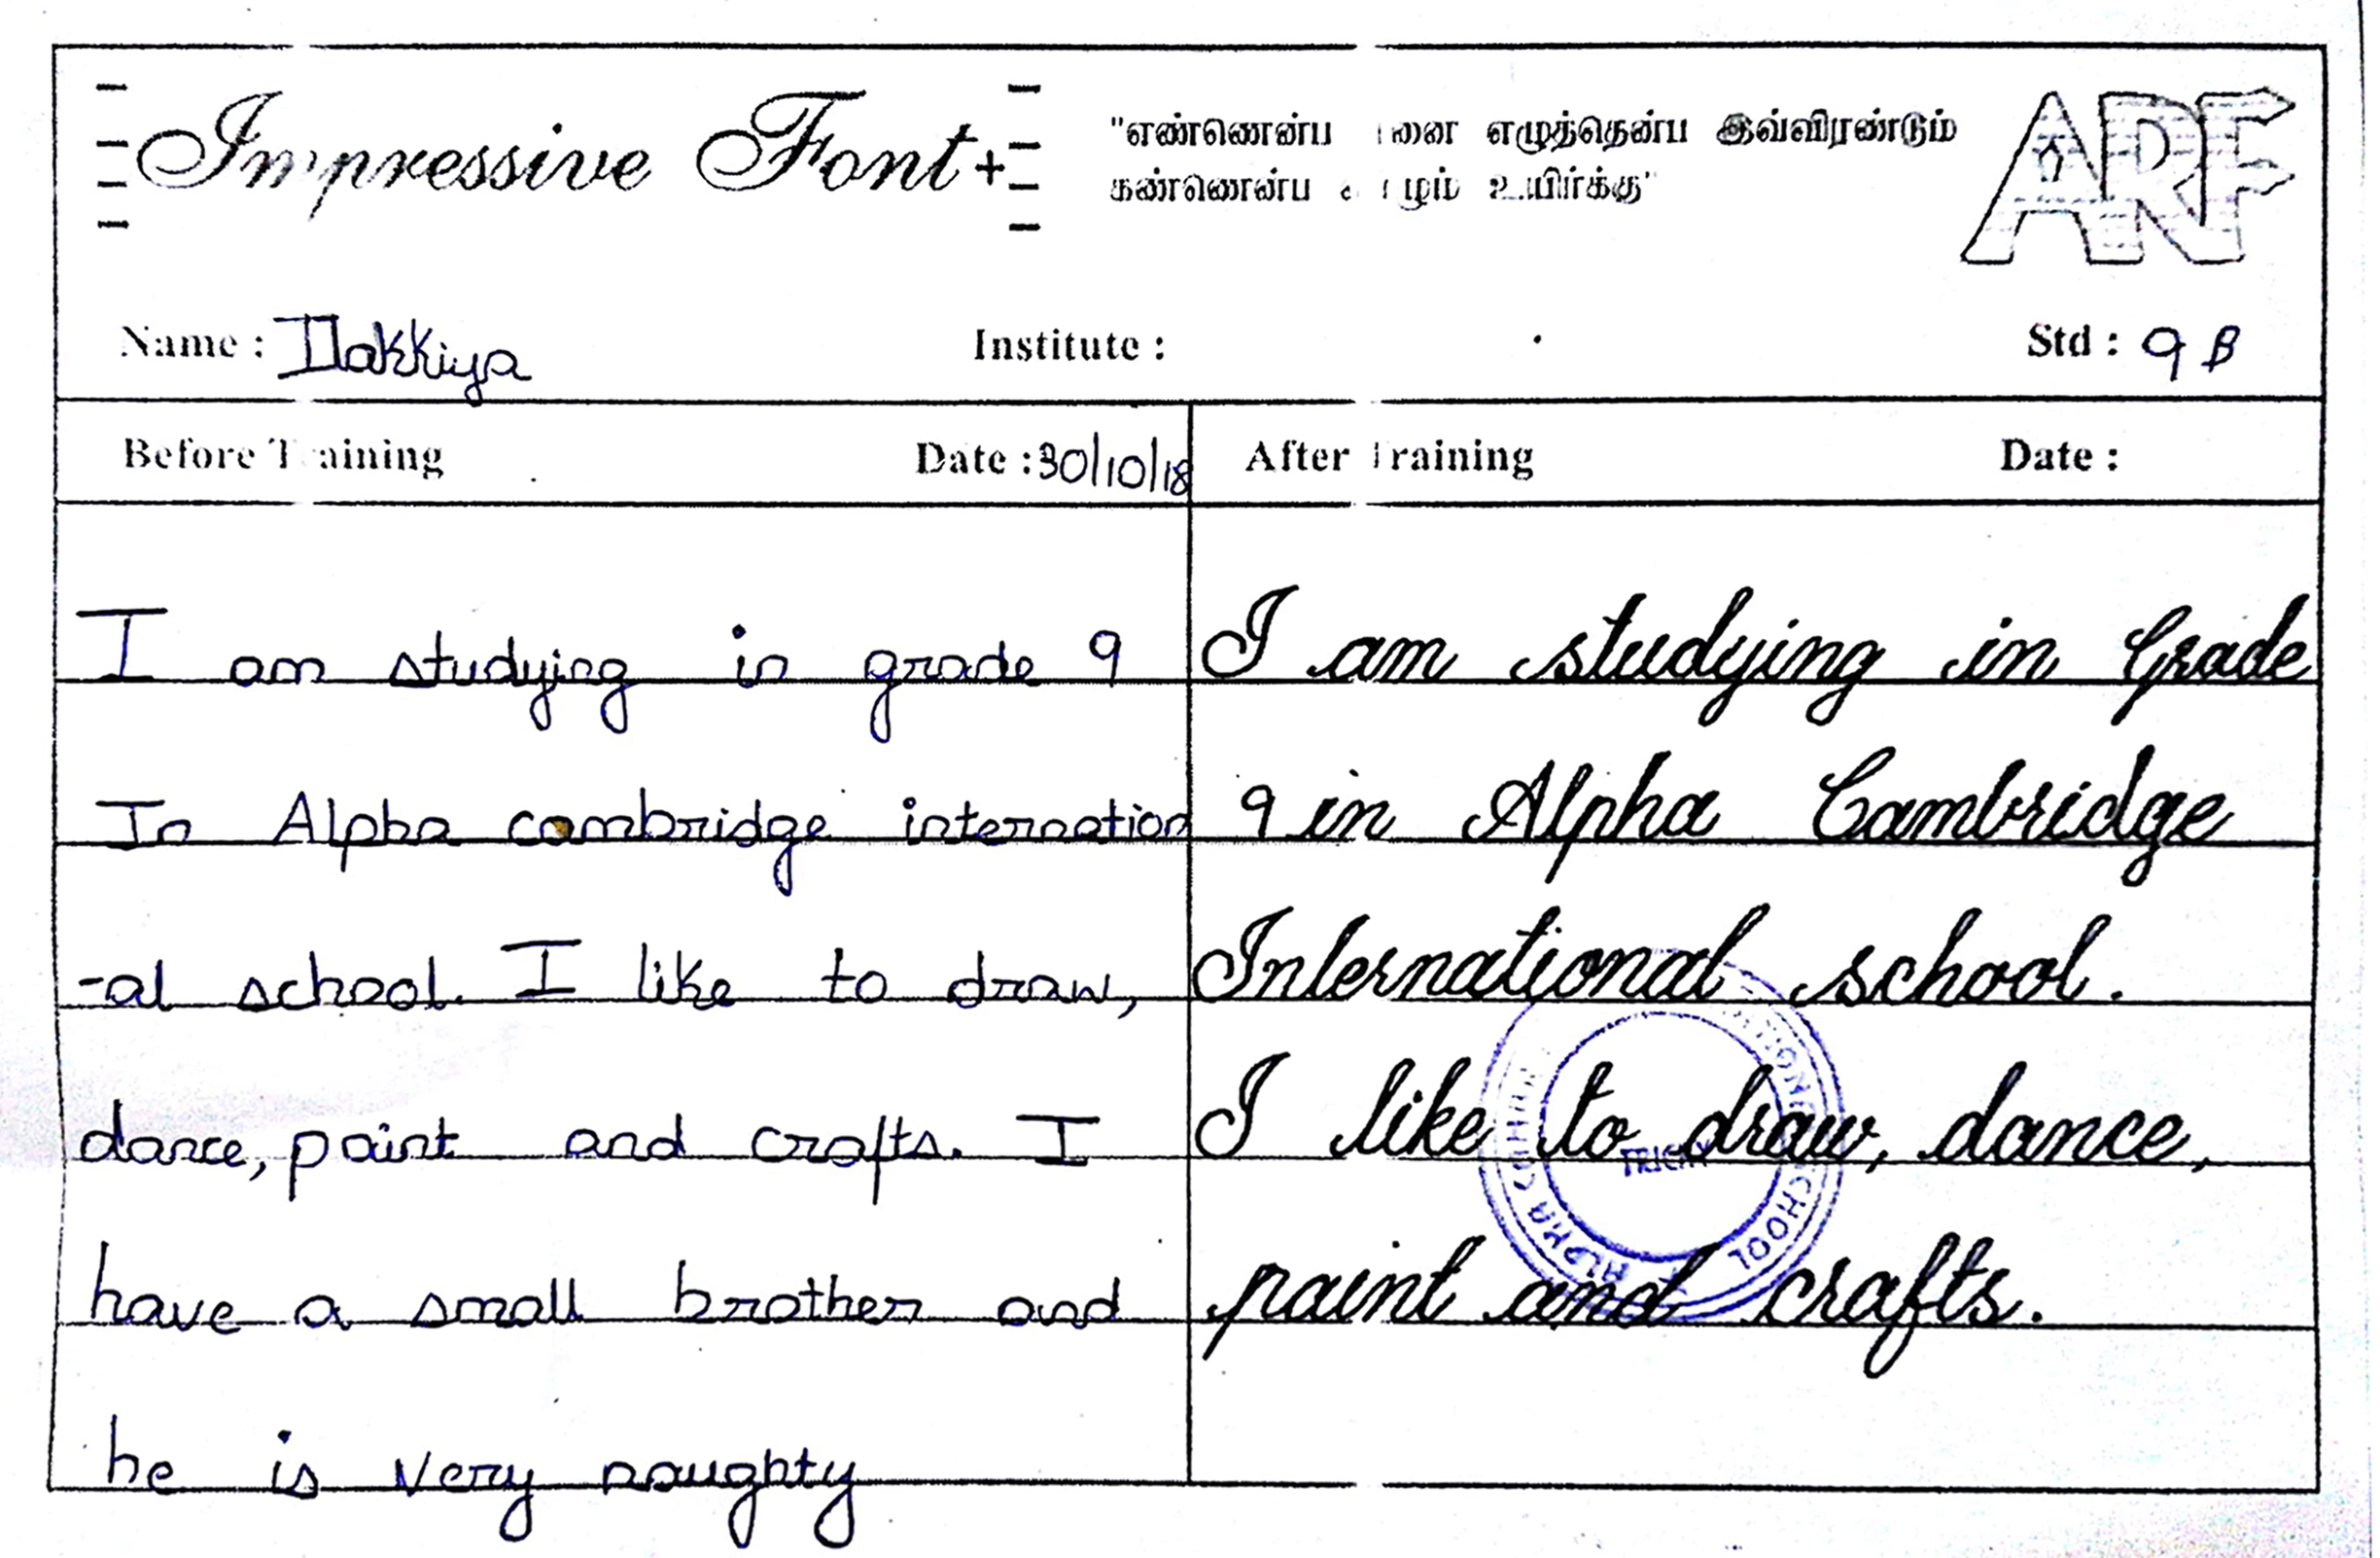 Impressive Font+
"எண்ணென்ப எழுத்தென்ப இவ்விரண்டும்
கண்ணென்ப உயிர்க்கு"
ARF
Name : Ilakkiya Institute : Std : 9 B
Before Training Date : 30/10/18 After Training Date :
I am studying in grade 9
In Alpha cambridge internation
-al school. I like to draw,
dance, paint and crafts. I
have a small brother and
he is very naughty
I am studying in Grade
9 in Alpha Cambridge
International school.
I like to draw, dance,
paint and crafts.
ALPHA SCHOOL
TRICHY